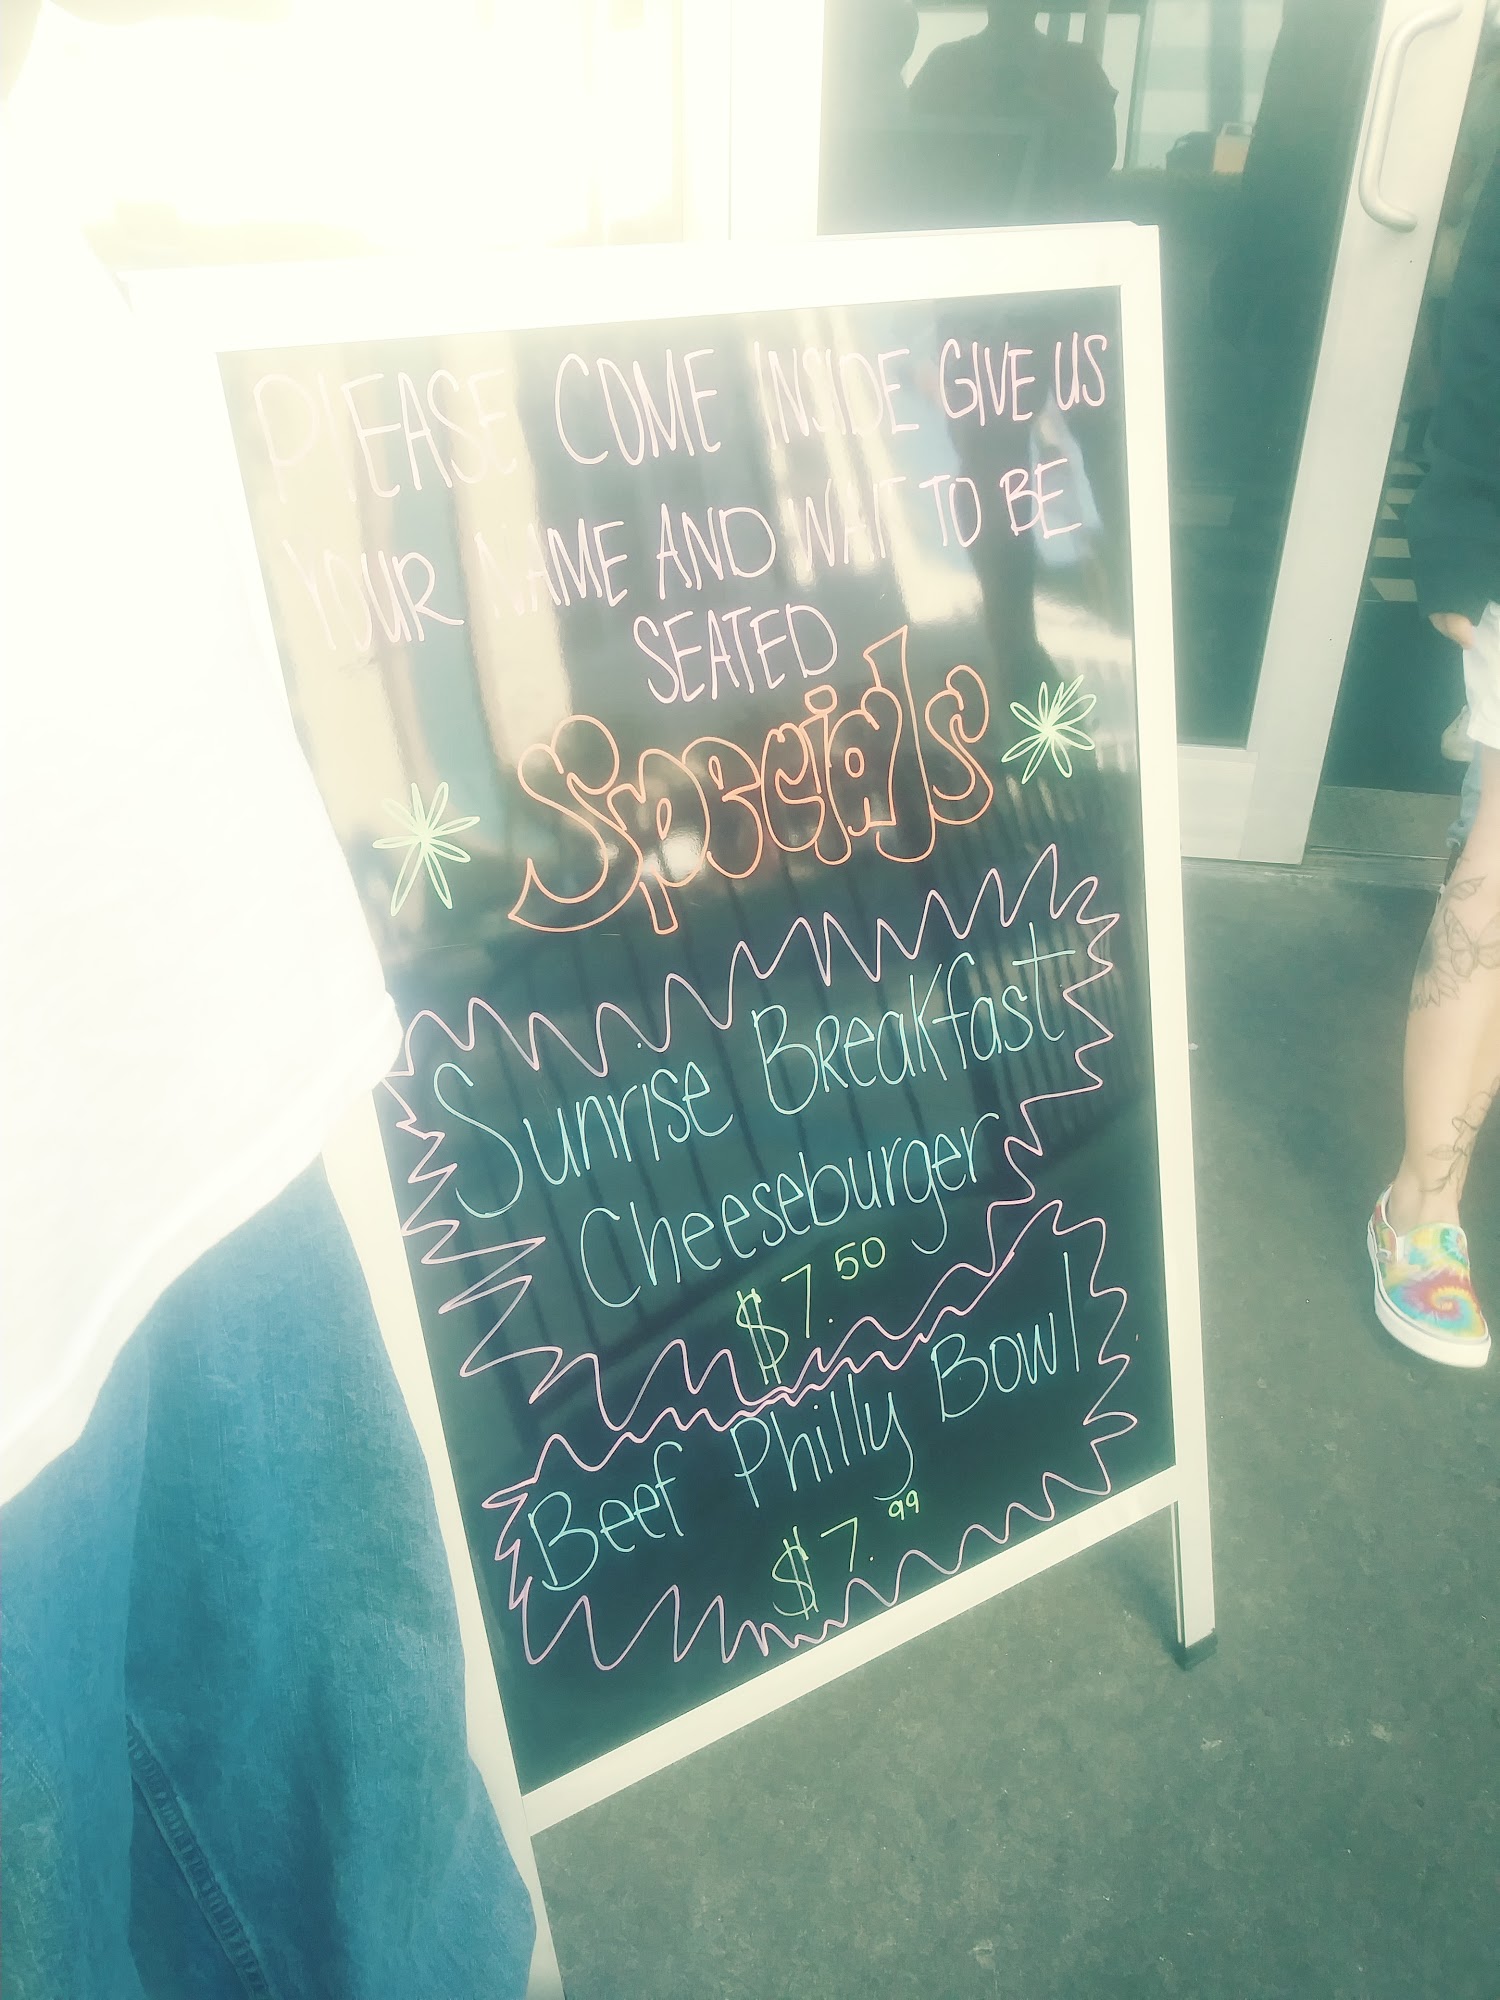 PLEASE COME INSIDE GIVE US
YOUR NAME AND WAIT TO BE
SEATED
Specials
Sunrise Breakfast
Cheeseburger
$7.50
Beef Philly Bowl
$7.99